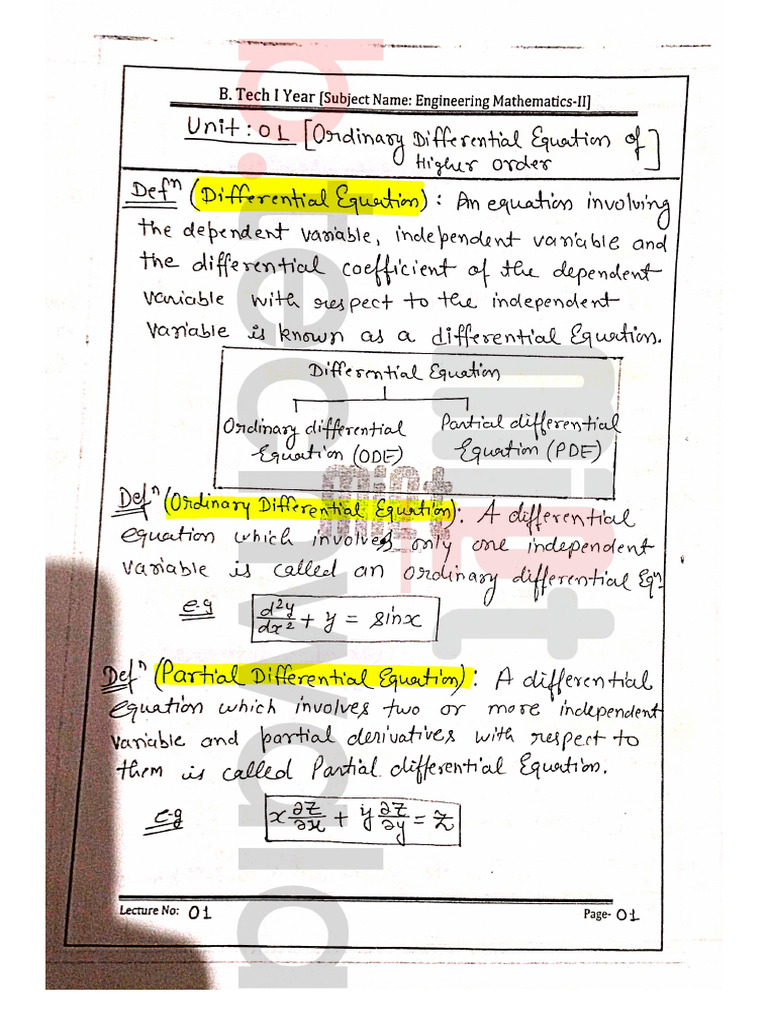 B. Tech I Year [Subject Name: Engineering Mathematics-II]
Unit: 01 [Ordinary Differential Equation of
Higher order]
Defⁿ (Differential Equation): An equation involving
the dependent variable, independent variable and
the differential coefficient of the dependent
variable with respect to the independent
variable is known as a differential Equation.
Differential Equation
Ordinary differential Equation (ODE)
Partial differential Equation (PDE)
Defⁿ (Ordinary Differential Equation): A differential
equation which involves only one independent
variable is called an ordinary differential Eqⁿ.
e.g d²y/dx² + y = sinx
Defⁿ (Partial Differential Equation): A differential
equation which involves two or more independent
variable and partial derivatives with respect to
them is called Partial differential Equation.
e.g x ∂z/∂x + y ∂z/∂y = z
Lecture No: 01
Page- 01